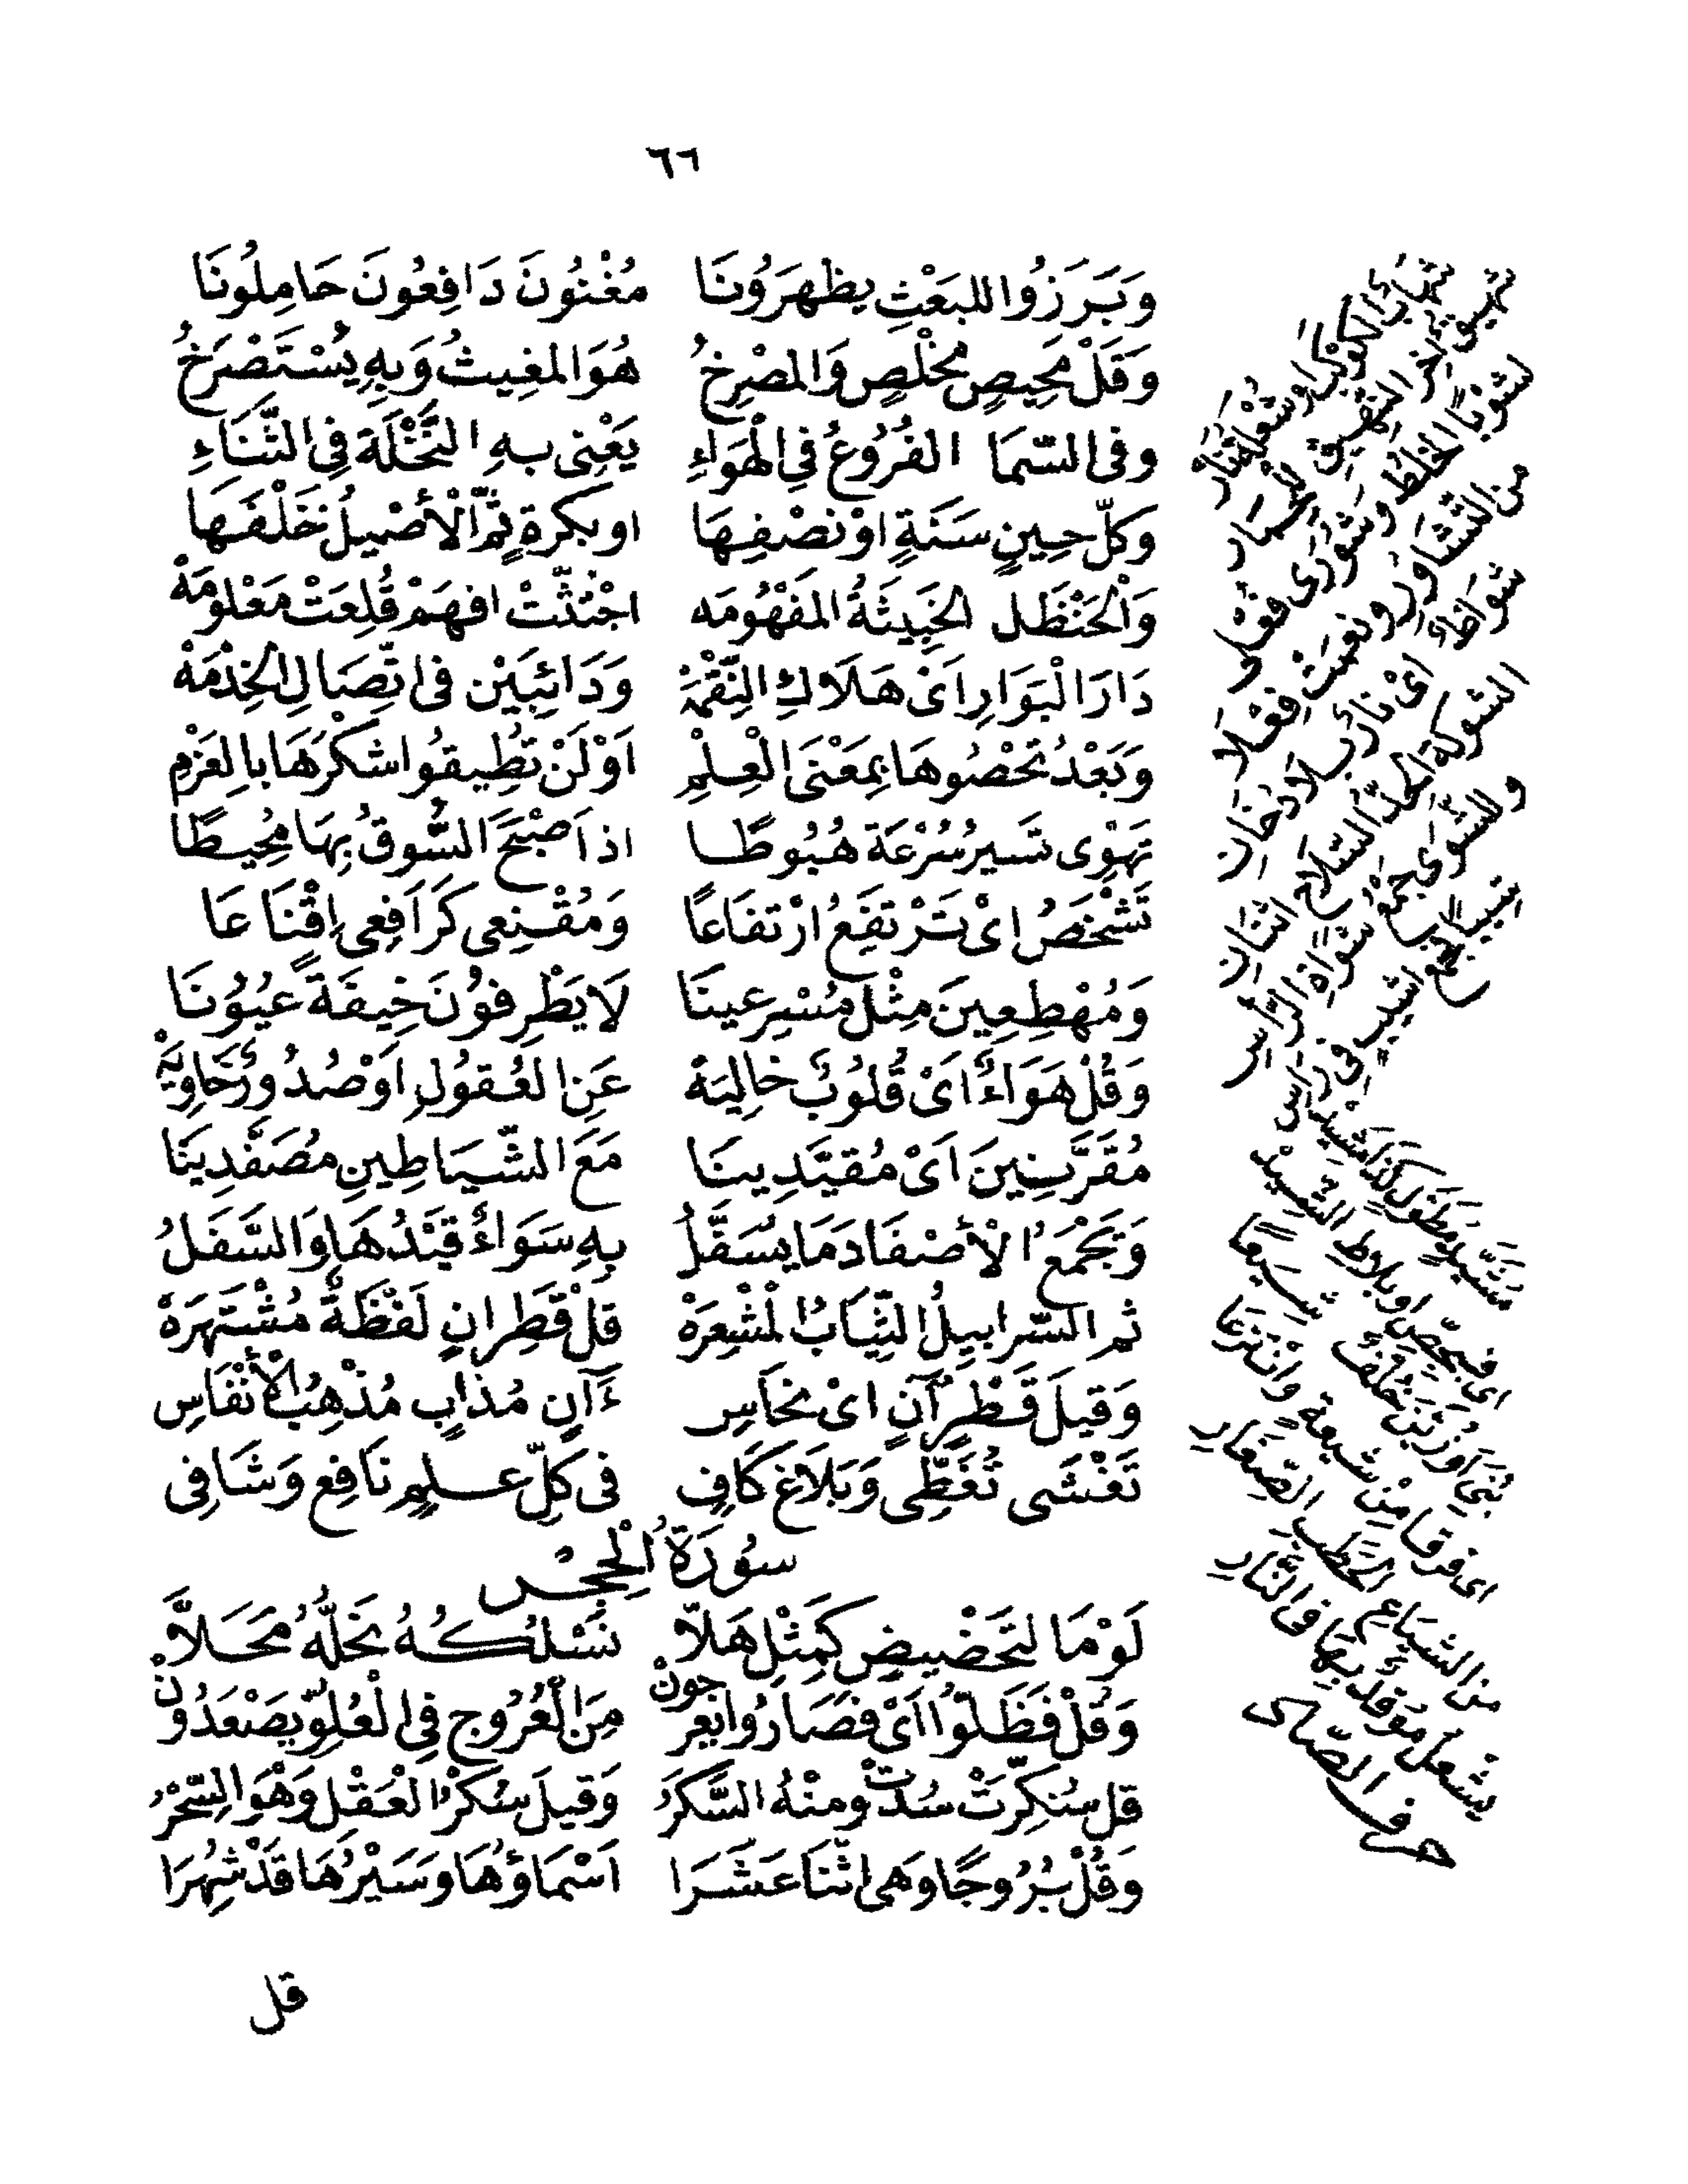 ٦٦
وَبَرَزُوا للبَعْثِ يظهَرَوُنَا مُغْنُونَ دَافِعُونَ حَامِلُونَا
وَقُلْ مَحِيصٍ مخْلَصٍ وَالمصْرِخُ هُوَ المغِيثُ وَبِهِ يُسْتَصْرَخُ
وفى السّمَا الفُرُوعُ فِي الْهَوَاءِ يَعْنِى بهِ النَّخْلَةَ فِي الثَّنَاءِ
وكلّ حِينٍ سَنَةٍ اوْ نصْفِهَا او بكرةٍ ثمَّ الْأصْيلُ خَلْفَهَا
وَالْحَنْظَل الخَبِيثَةُ المَفْهُومَه اجْتُثَّتْ افهَمْ قُلِعَتْ مَعْلُومَهْ
دَارَ الْبَوَارِ اَىْ هَلَاكِ النِّقْمَهْ وَدَائِبَيْن فى اتِّصَالِ الخِدْمَهْ
وَبَعْدُ تحْصُوهَا بمَعْنَى الْعِلْمِ اَوْ لَنْ تُطِيقُوا شكْرَهَا بالعَزْمِ
تَهْوِى تَسيرُ سُرْعَة هُبُوطًا اذ اَصْبَحَ السُّوقُ بِهَا مُحِيطًا
تَشْخَصُ اىْ تَرْتفَعُ ارْتفَاعًا وَمُقْنِعى كَرَافِعِى اِقْنَاعَا
وَمُهْطِعِينَ مِثْلُ مُسْرِعينَا لَا يَطْرِفوُنَ خِيفَةً عيُوُنَا
وَقُلْ هَوَاءٌ اَىْ قُلُوبٌ خالِيَهْ عَنِ العُقولِ اَوْ صُدُورٌ خَاوِيَهْ
مُقَرَّنِينَ اَىْ مُقيَّدِينَا مَعَ الشّيَاطِينِ مُصَفَّدِينَا
وَتَجْمَعُ الْأصْفَاد مَا يسَفَّلُ بِهِ سَوَاءٌ قيْدُهَا وَالسَّفَلُ
ثم السّرابيلُ الثِّيَابُ الْمُشْعِرَهْ قُلْ قَطِرانٍ لَفْظَةٌ مُشْتَهَرَهْ
وَقيلَ قَطْرٍ آنٍ اىْ نحَاسِ ءَآنٍ مُذابٍ مُذْهِبُ الْأنْفَاسِ
تَغْشَى تُغَطِّى وَبَلَاغ كَافٍ فى كلِّ علمٍ نَافِع وَشَافِى
سُورَةُ الْحِجْر
لَوْمَا لتَحَضْيضٍ كَمِثْلِ هَلاّ نَسْلُكُهُ نحَلُّهُ مَحَلاَّ
وَقُلْ فَظَلوُّا اَىْ فصَارُوا يعْرجونْ مِنَ الْعُرُوج فِي الْعُلوِّ يصْعَدُونْ
قل سُكِّرَتْ سُدتْ ومنْهُ السَّكَرُ وَقيلَ سكْرُ الْعَقْلِ وَهْوَ السِّحْرُ
وَقُلْ بُرُوجًا وَهى اثْنَا عَشَرَا اَسْمَاؤُهَا وسَيْرُهَا قَدْ شُهِرَا
قل
لشَوْبًا الخلْطُ وشوْرَى فعْلَى
من التشَاوُرِ ونعت فعْلَا
شُوَاظٌ اىْ نارٌ بلا دُخَانِ
الشوكة الحدُّ السّلاح الثانِ
وللشّوَى جمْعُ شوَاةِ الرّأسِ
شيبًا جمع اشيب فى راسِ
اى فرقا منْ شيعَةٍ
يشعل موقَدٌ بهَا فى النارِ
حرف الصّاد